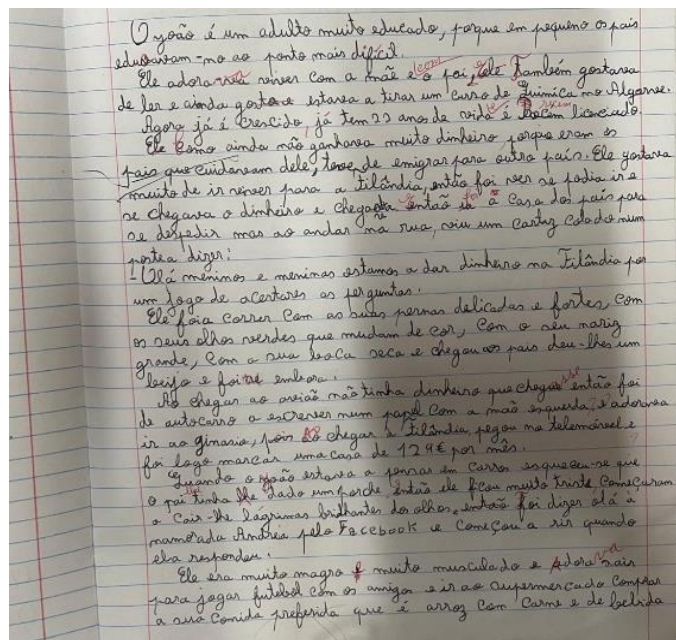 O João é um adulto muito educado, porque em pequeno os pais
educavam-no ao ponto mais difícil.
Ele adorava viver com a mãe e com o pai, ele também gostava
de ler e ainda gosta e estava a tirar um curso de Química no Algarve.
Agora já é crescido, já tem 22 anos de vida e é recém licenciado.
Ele como ainda não ganhava muito dinheiro porque eram os
pais que cuidavam dele, teve de emigrar para outro país. Ele gostava
muito de ir viver para a Filândia, então foi ver se podia ir e
se chegava o dinheiro e chegava então foi à casa dos pais para
se despedir mas ao andar na rua, viu um cartaz colado num
poste a dizer:
- Olá meninos e meninas estamos a dar dinheiro na Filândia por
um jogo de acertares as perguntas.
Ele foi a correr com as suas pernas delicadas e fortes, com
os seus olhos verdes que mudam de cor, com o seu nariz
grande, com a sua boca seca e chegou aos pais deu-lhes um
beijo e foi embora.
Ao chegar ao avião não tinha dinheiro que chegasse então foi
de autocarro a escrever num papel com a mão esquerda e adorava
ir ao ginasio, pois ao chegar à Filândia, pegou no telemóvel e
foi logo marcar uma casa de 129€ por mês.
Quando o João estava a pensar em carros esqueceu-se que
o pai lhe tinha dado um porche então ele ficou muito triste começaram
a cair-lhe lágrimas brilhantes dos olhos, então foi dizer olá à
namorada Andreia pelo Facebook e começou a rir quando
ela respondeu.
Ele era muito magro e muito musculado e adorava sair
para jogar futebol com os amigos e ir ao supermercado comprar
a sua comida preferida que é arroz com carne e de bebida